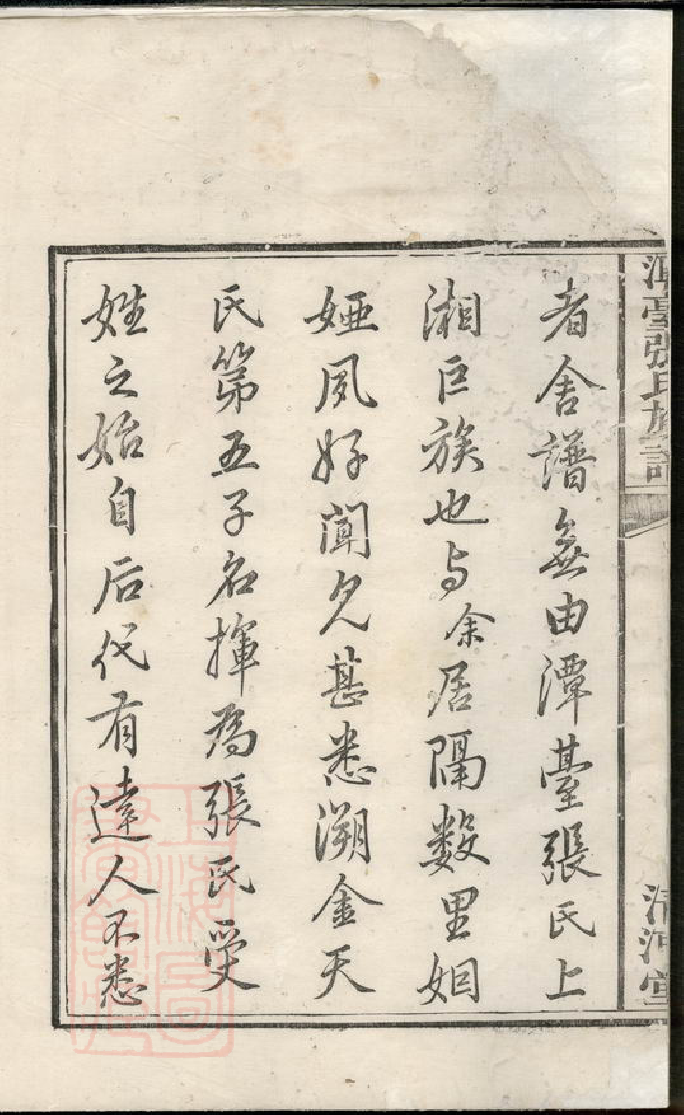 潭臺張氏族譜
清河堂
者舍譜無由潭臺張氏上
湘巨族也与余居隔数里姻
婭夙好聞見甚悉溯金天
氏第五子名揮為張氏受
姓之始自后代有達人不悉
上海圖
書館藏